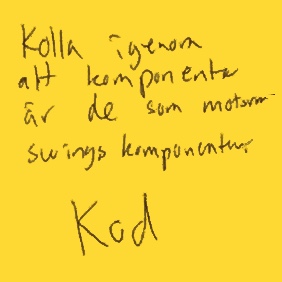 Kolla igenom
att komponenter
är de som motsvar
swings komponenter
Kod